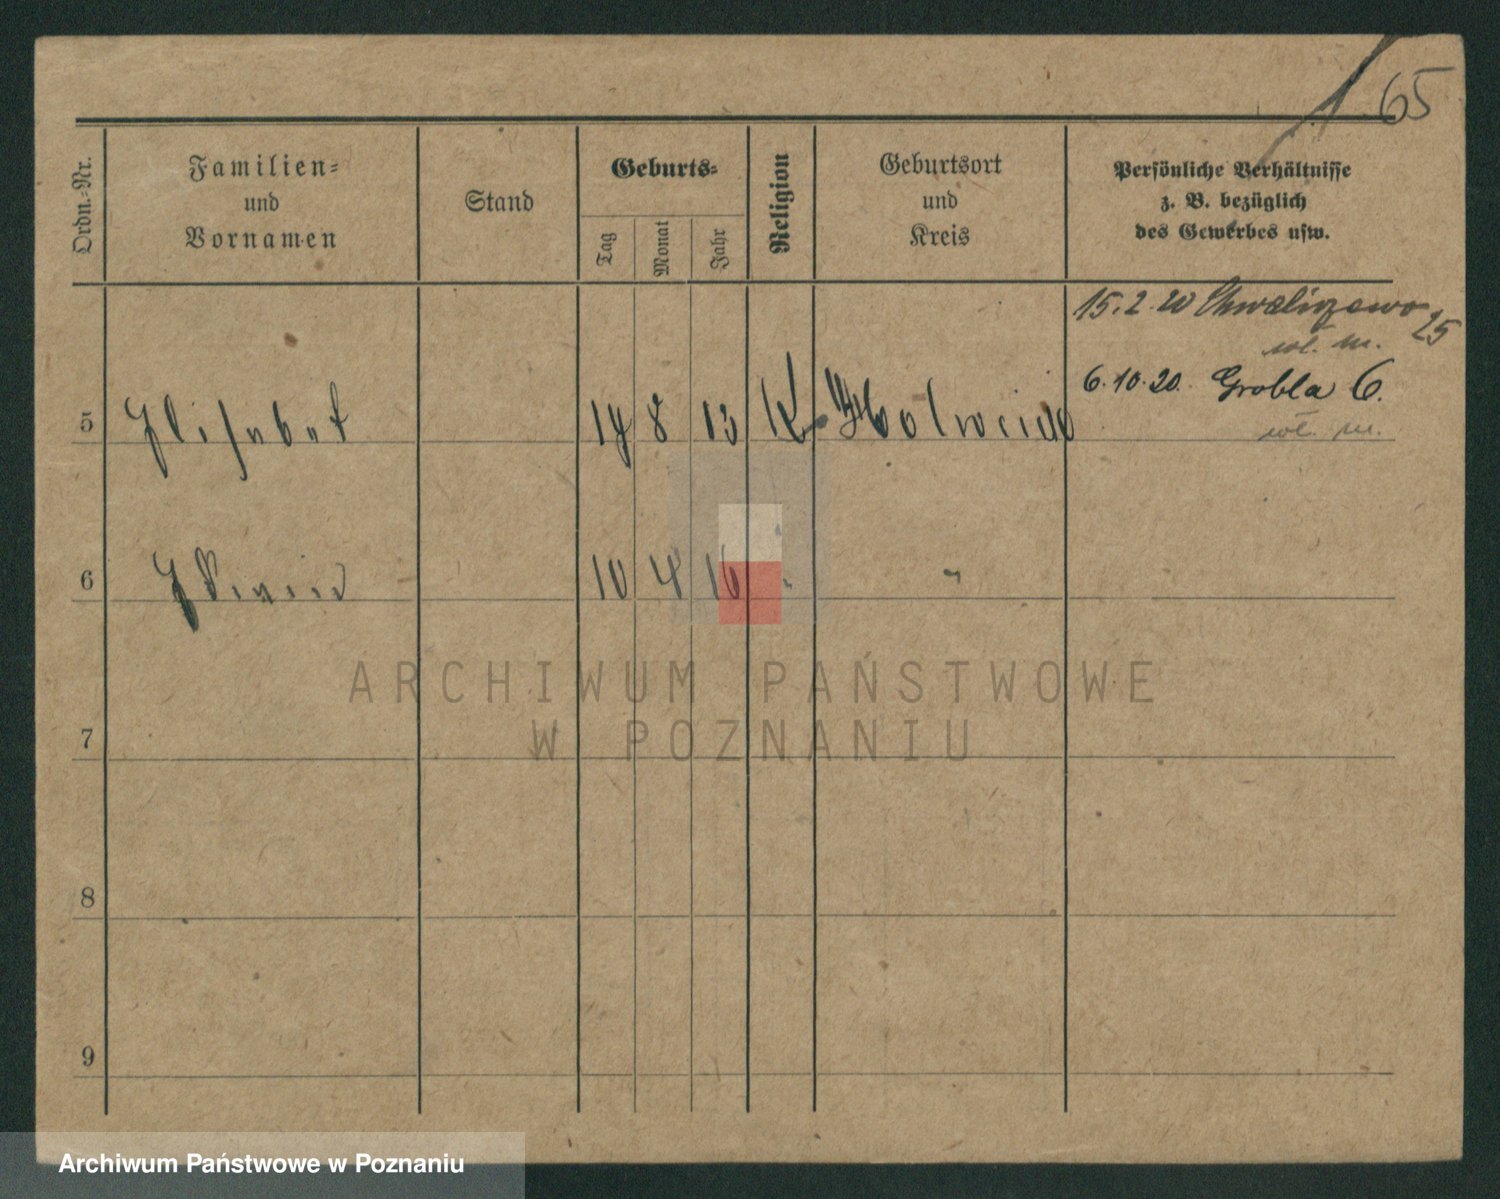 65
Ordn.-Nr.
Familien-
und
Vornamen
Stand
Geburts-
Tag
Monat
Jahr
Religion
Geburtsort
und
Kreis
Persönliche Verhältnisse
z. B. bezüglich
des Gewerbes usw.
15.2.20 Chwaliszewo
25
wł. m.
6.10.20. Grobla 6.
wł. m.
5 Elisabet 8 13 K.
6 10 4 16 " "
7
8
9
ARCHIWUM PAŃSTWOWE
W POZNANIU
Archiwum Państwowe w Poznaniu